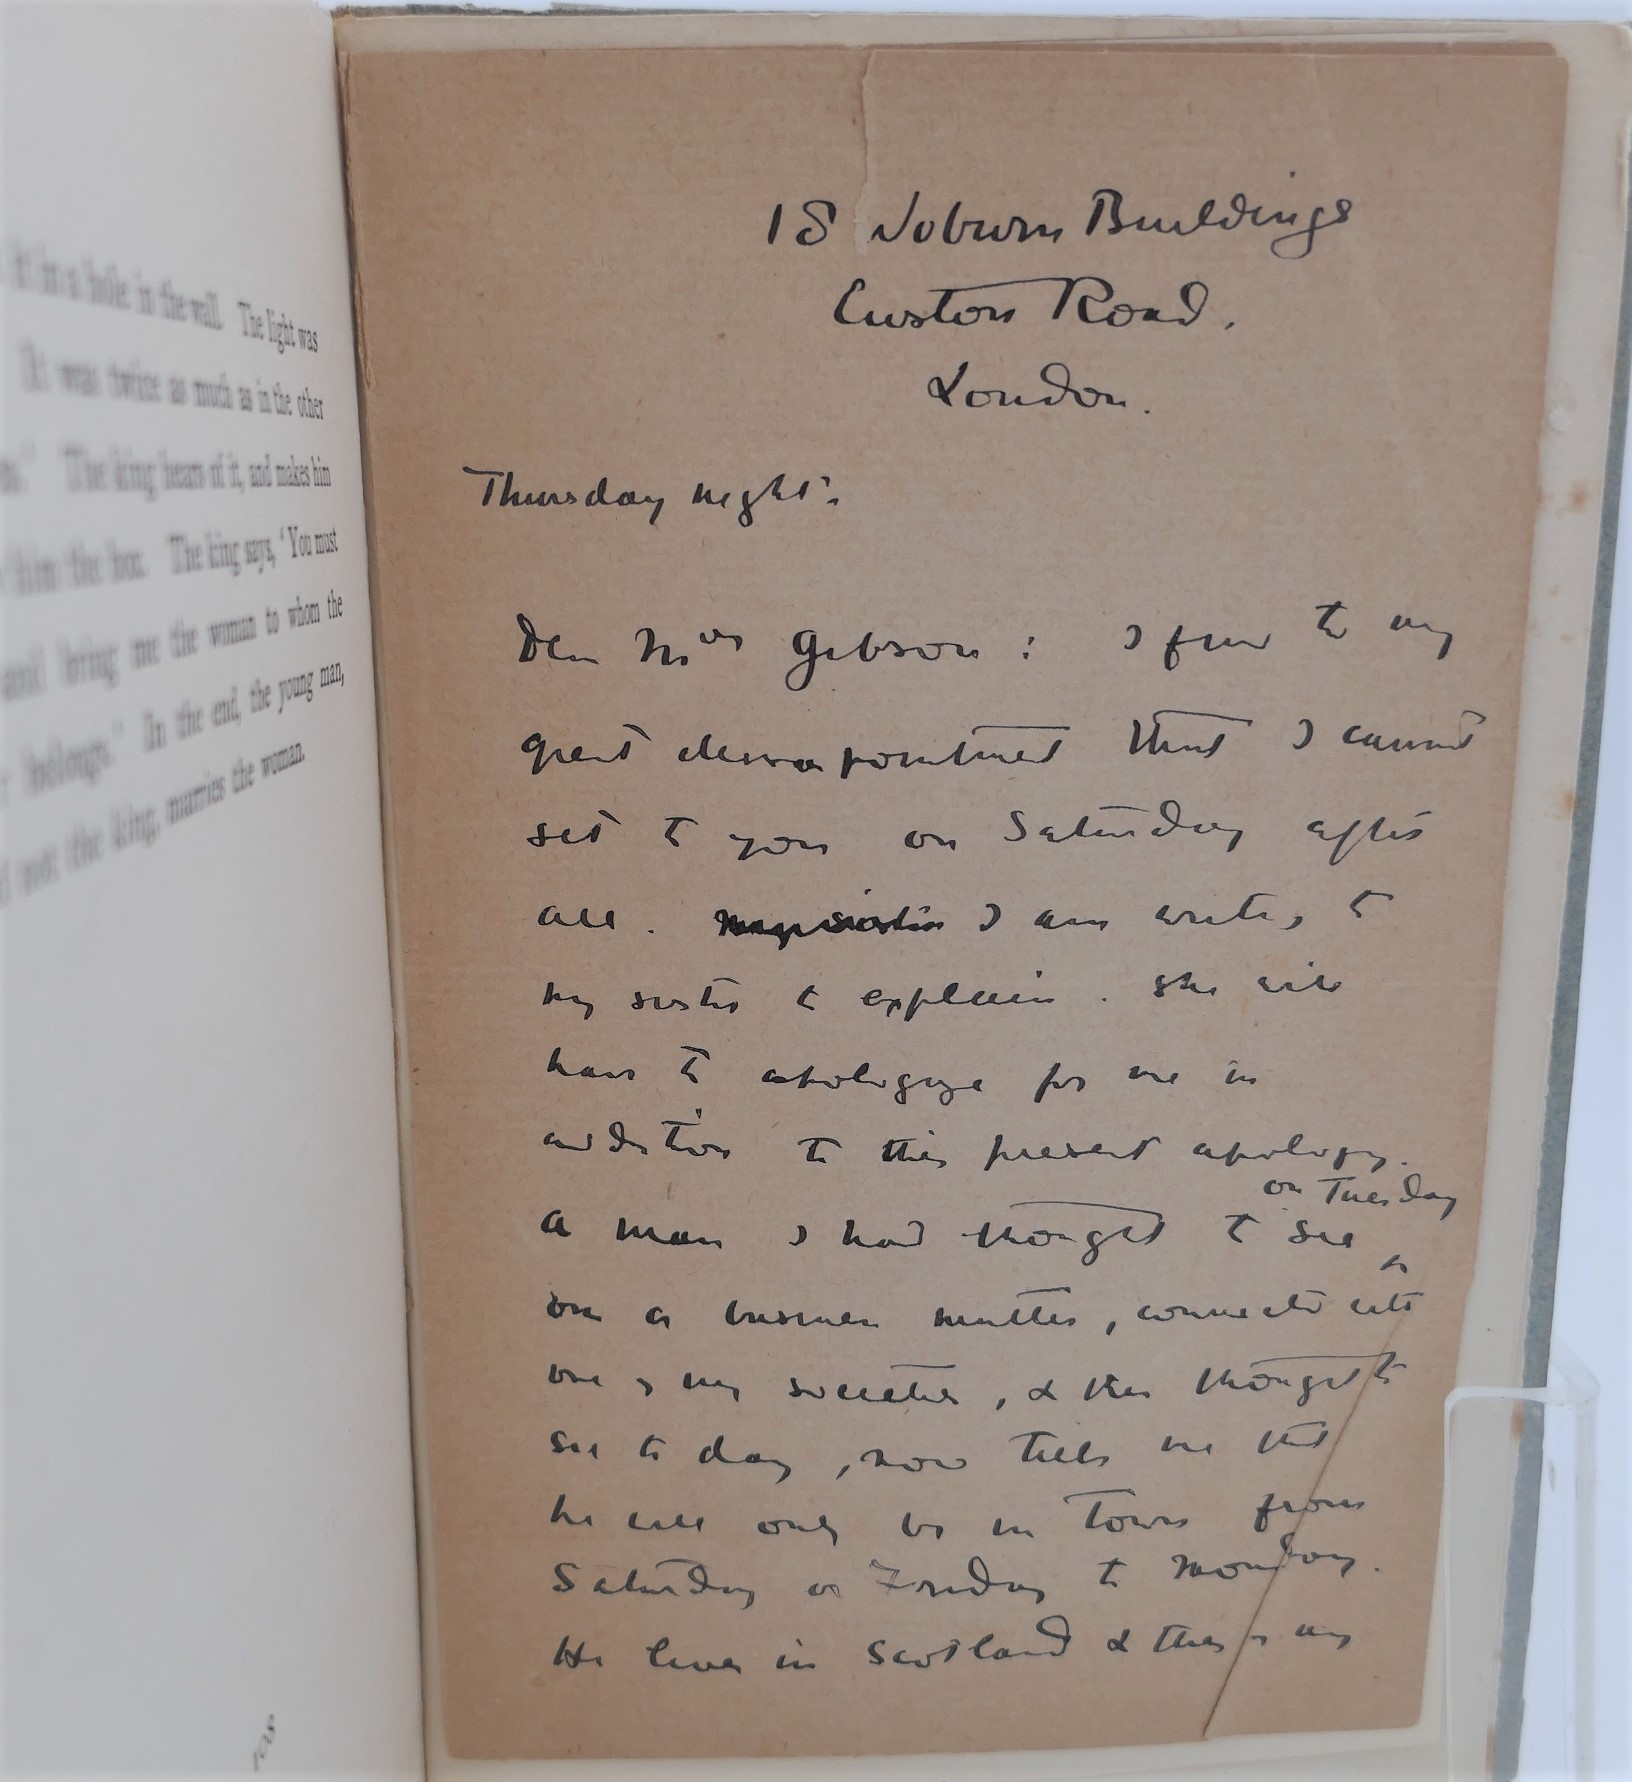 it in a hole in the wall. The light was
It was twice as much as in the other
The king hears of it, and makes him
him the box. The king says, 'You must
and bring me the woman to whom the
belongs.' In the end, the young man,
not the king, marries the woman.
108
18 Woburn Buildings
Euston Road.
London.
Thursday night.
Dear Mrs Gibson: I find to my
great dissapointment that I cannot
get to you on Saturday after
all. my sister I am writing to
my sister to explain. She will
have to apologize for me in
addition to this present apology.
on Tuesday
A man I had thought to see
on a business matter, connected with
one of my societies, & then thought to
see to day, now tells me that
he will only be in town from
Saturday or Friday to Monday.
He lives in Scotland & this is my